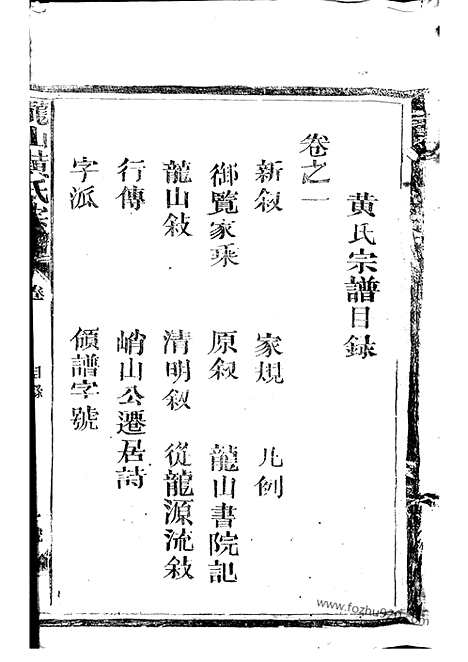 黄氏宗譜目録
卷之一
新叙 家規 凡例
御覽家乘 原叙 龍山書院記
龍山敍 清明叙 從龍源流敍
行傳 峭山公遷居詩
字派 領譜字號
龍山黄氏宗譜 卷 目録
www.fozhu920.com